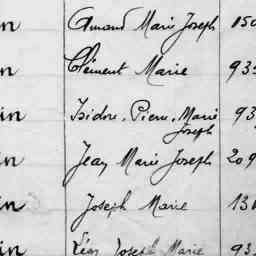 in Armand Marie Joseph 150
in Clément Marie 935
in Isidore. Pierre. Marie 93
Joseph
in Jean Marie Joseph 209
in Joseph Marie 131
in Léon Joseph Marie 93